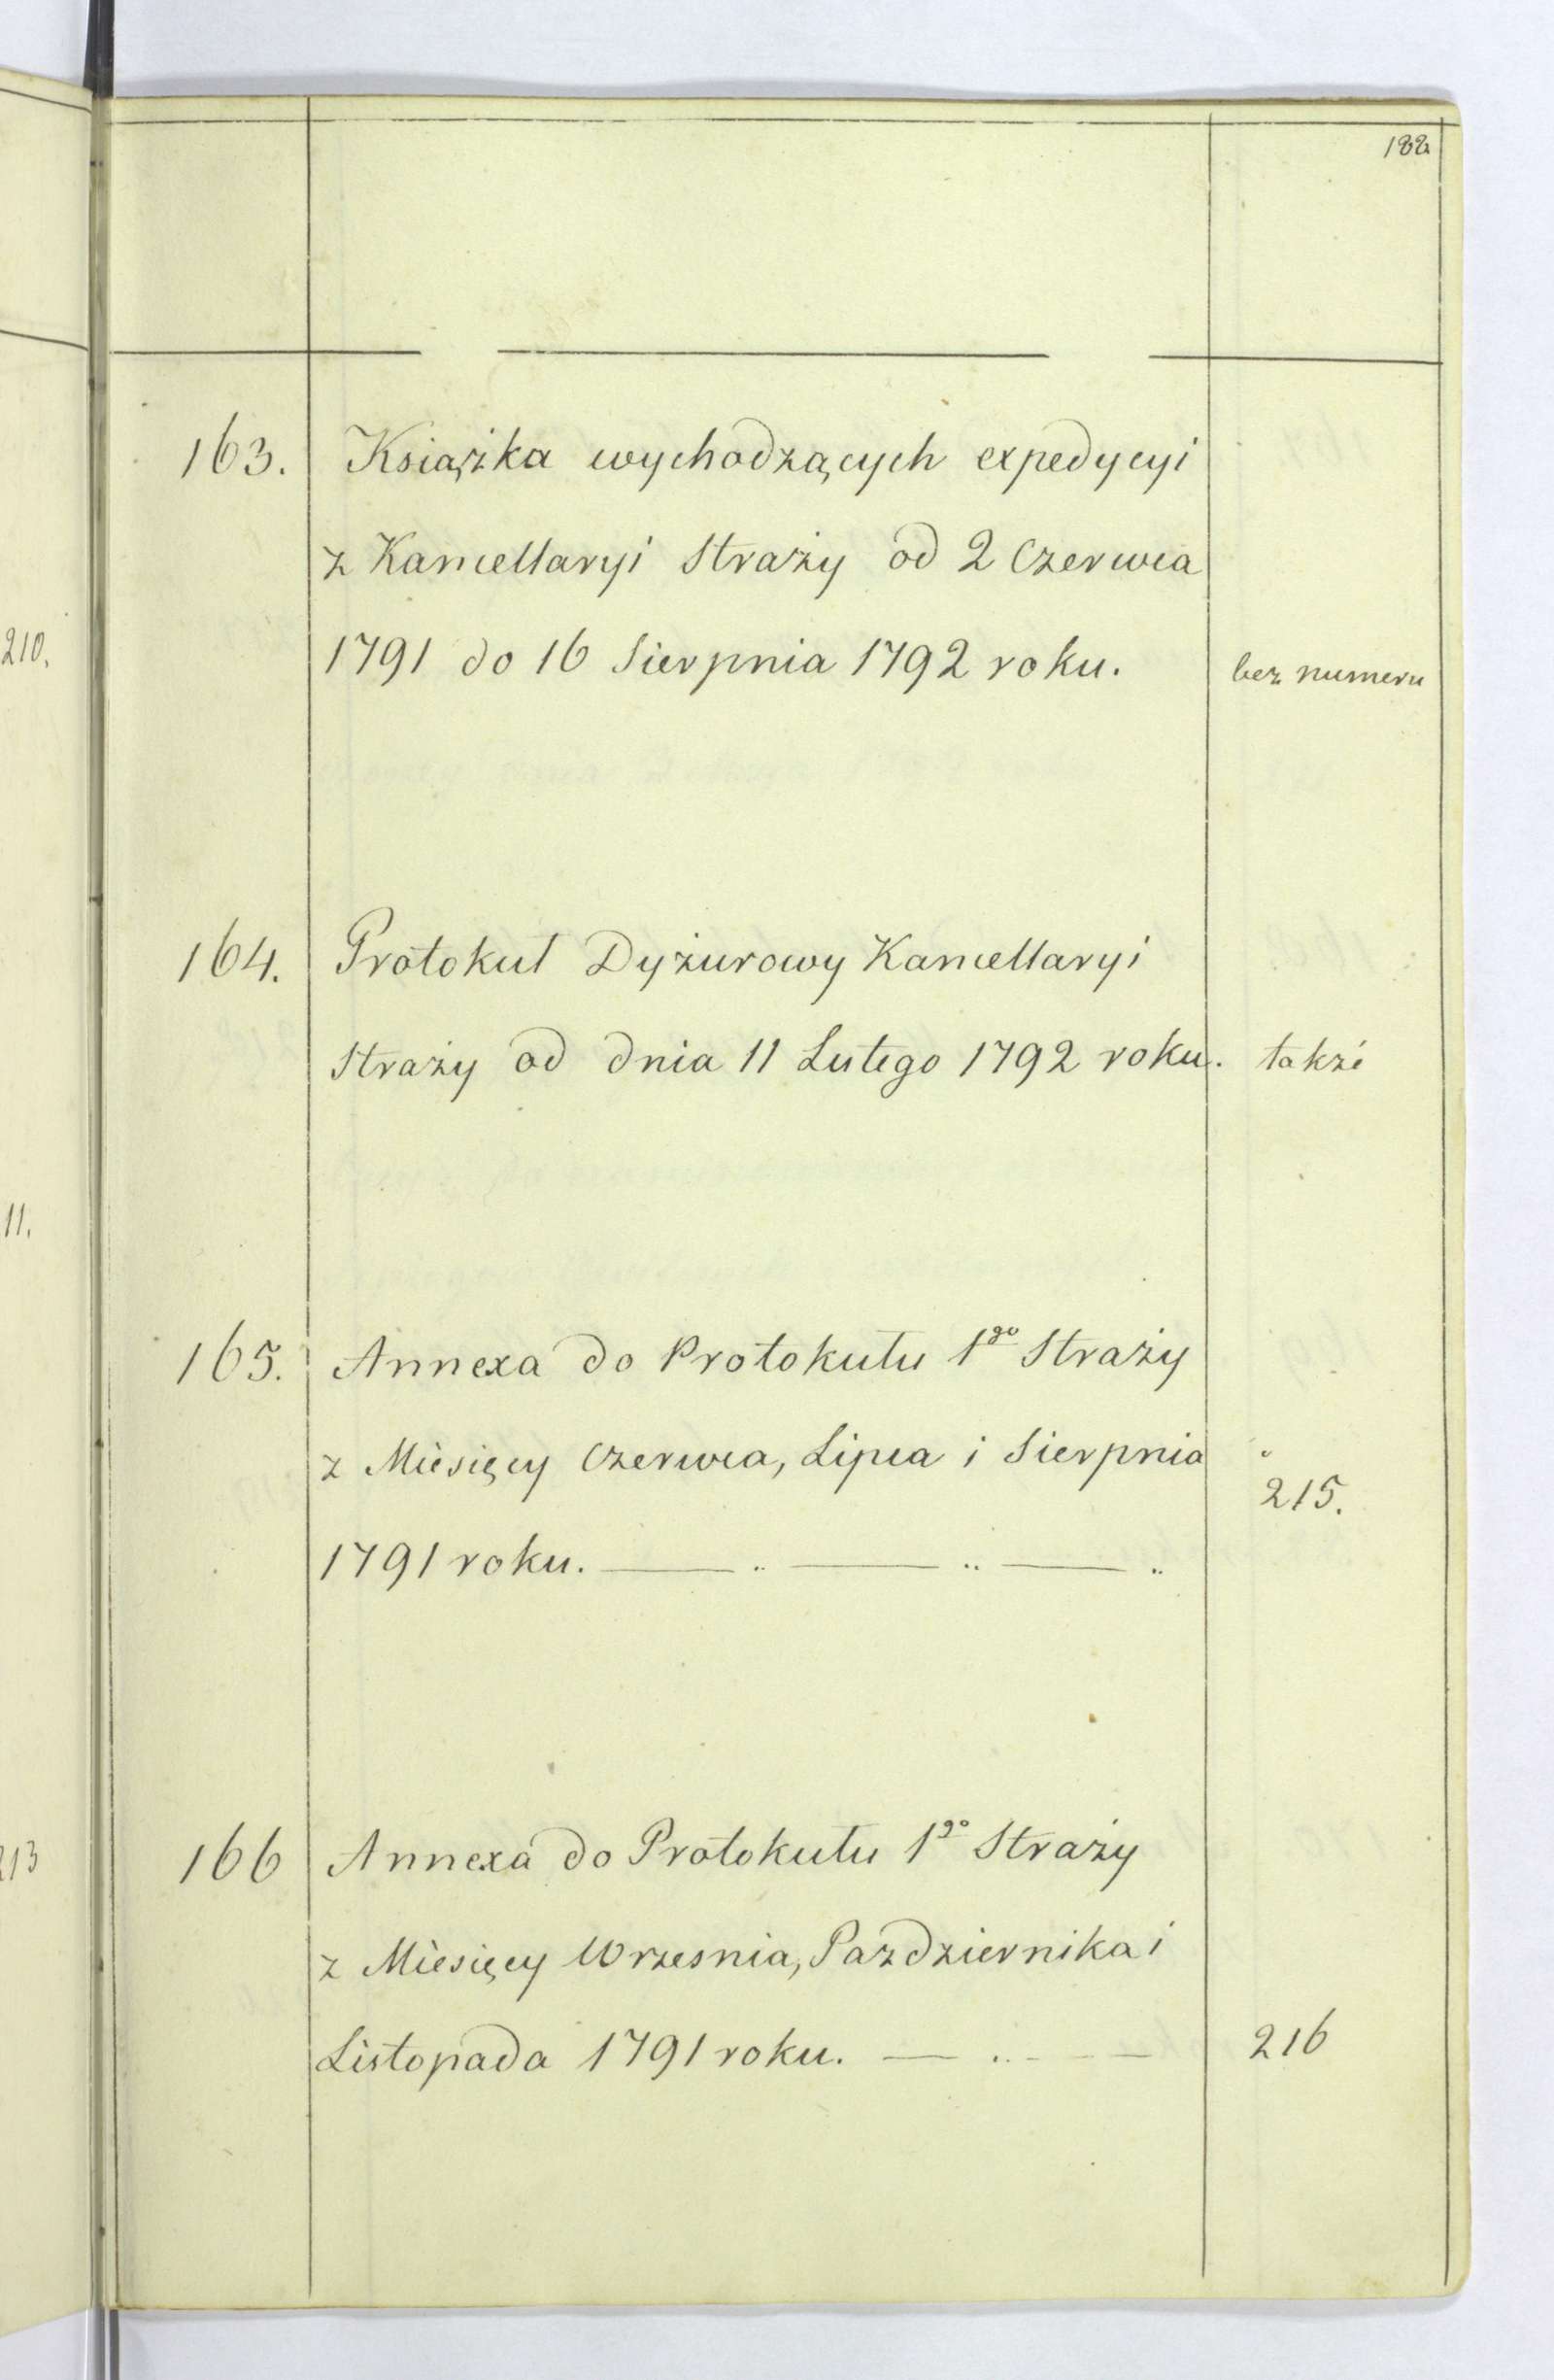 188
163. Książka wychodzących expedycyi
z Kancellaryi Straży od 2 Czerwca
1791 do 16 Sierpnia 1792 roku. bez numeru
164. Protokuł Dyżurowy Kancellaryi
Straży od dnia 11 Lutego 1792 roku. także
165. Annexa do Protokułu 1go Straży
z Miesięcy Czerwca, Lipca i Sierpnia
215.
1791 roku. — .. — .. — ..
166 Annexa do Protokułu 1go Straży
z Miesięcy Wrzesnia, Pazdziernika i
Listopada 1791 roku. — .. — — — 216
210.
11.
213